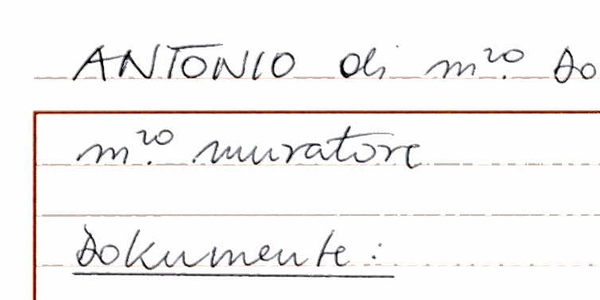 ANTONIO di m.ro Do
m.ro muratore
Dokumente: